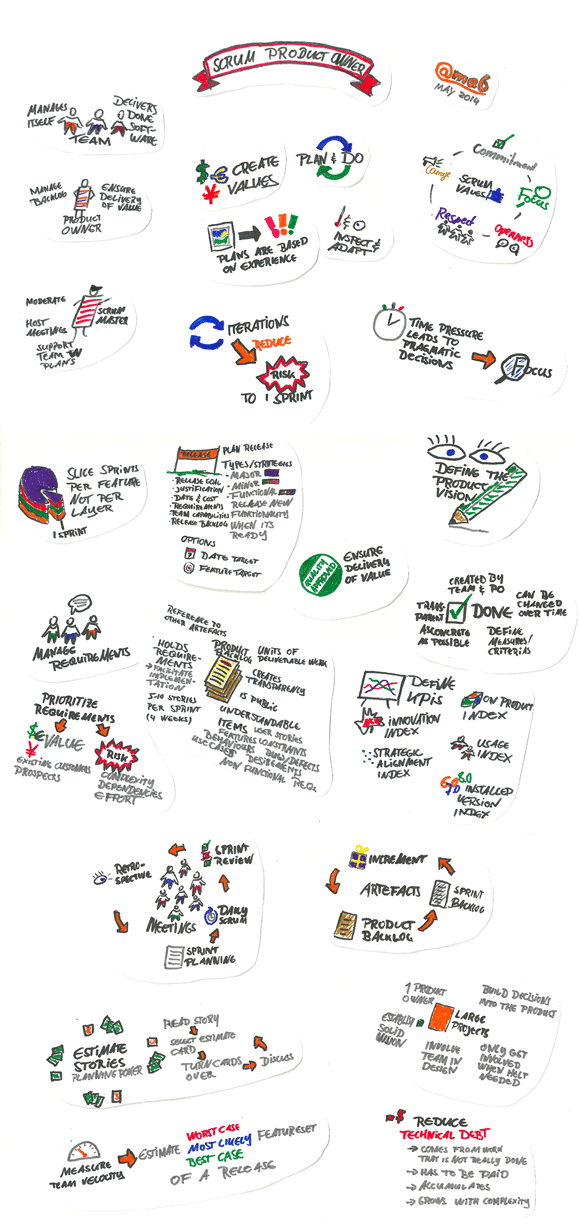 SCRUM PRODUCT OWNER
@ma6
MAY 2014
MANAGES
ITSELF
DELIVERS
DONE
SOFT-
WARE
TEAM
MANAGE
BACKLOG
ENSURE
DELIVERY
OF VALUE
PRODUCT
OWNER
$ € ¥
CREATE
VALUES
PLAN & DO
PLANS ARE BASED
ON EXPERIENCE
INSPECT &
ADAPT
Commitment
Courage
SCRUM
VALUES
FOCUS
Respect
OPENNESS
MODERATE
HOST
MEETINGS
SUPPORT
TEAM
PLANS
SCRUM
MASTER
ITERATIONS
REDUCE
RISK
TO 1 SPRINT
TIME PRESSURE
LEADS TO
PRAGMATIC
DECISIONS
FOCUS
SLICE SPRINTS
PER FEATURE
NOT PER
LAYER
1 SPRINT
RELEASE
PLAN RELEASE
- RELEASE GOAL
- JUSTIFICATION
- DATE & COST
- REQUIREMENTS
- TEAM CAPABILITIES
- RELEASE BACKLOG
TYPES/STRATEGIES
- MAJOR
- MINOR
- FUNCTIONAL
RELEASE NEW
FUNCTIONALITY
WHEN ITS
READY
OPTIONS
DATE TARGET
FEATURE TARGET
DEFINE THE
PRODUCT
VISION
QUALITY
APPROVED
ENSURE
DELIVERY
OF VALUE
CREATED BY
TEAM & PO
TRANS-
PARENT
DONE
CAN BE
CHANGED
OVER TIME
AS CONCRETE
AS POSSIBLE
DEFINE
MEASURES/
CRITERIAS
MANAGE
REQUIREMENTS
REFERENCE TO
OTHER ARTEFACTS
HOLDS
REQUIRE-
MENTS
→ FACILITATE
IMPLEMEN-
TATION
5-10 STORIES
PER SPRINT
(4 WEEKS)
PRODUCT
BACKLOG
UNITS OF
DELIVERABLE WORK
CREATES
TRANSPARENCY
IS PUBLIC
UNDERSTANDABLE
ITEMS USER STORIES
FEATURES CONSTRAINTS
BEHAVIOURS BUGS/DEFECTS
USE CASES DESIREMENTS
NON FUNCTIONAL REQ.
PRIORITISE
REQUIREMENTS
$ € ¥
VALUE
EXISTING CUSTOMERS
PROSPECTS
RISK
COMPLEXITY
DEPENDENCIES
EFFORT
DEFINE
KPIs
INNOVATION
INDEX
STRATEGIC
ALIGNMENT
INDEX
ON PRODUCT
INDEX
USAGE
INDEX
6.0 7.0 8.0
INSTALLED
VERSION
INDEX
RETRO-
SPECTIVE
SPRINT
REVIEW
MEETINGS
DAILY
SCRUM
SPRINT
PLANNING
INCREMENT
ARTEFACTS
SPRINT
BACKLOG
PRODUCT
BACKLOG
ESTIMATE
STORIES
PLANNING POKER
READ STORY
SELECT ESTIMATE
CARD
TURN CARDS
OVER
DISCUSS
1 PRODUCT
OWNER
BUILD DECISIONS
INTO THE PRODUCT
ESTABLISH
SOLID
VISION
LARGE
PROJECTS
INVOLVE
TEAM IN
DESIGN
ONLY GET
INVOLVED
WHEN HELP
NEEDED
MEASURE
TEAM VELOCITY
ESTIMATE
WORST CASE
MOST LIKELY
BEST CASE
FEATURESET
OF A RELEASE
-$ REDUCE
TECHNICAL DEBT
→ COMES FROM WORK
THAT IS NOT REALLY DONE
→ HAS TO BE PAID
→ ACCUMULATES
→ GROWS WITH COMPLEXITY